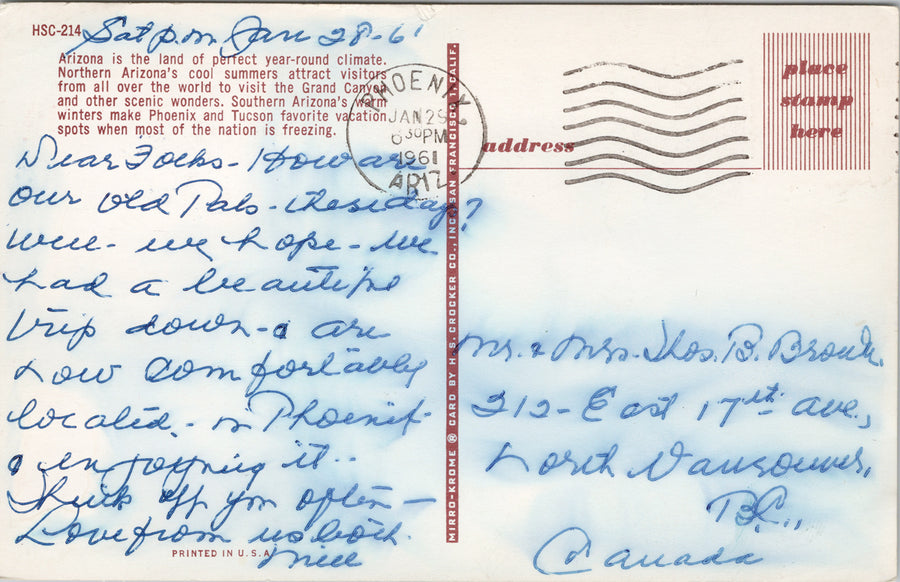 HSC-214
Sat p.m Jan 28-61
Arizona is the land of perfect year-round climate.
Northern Arizona's cool summers attract visitors
from all over the world to visit the Grand Canyon
and other scenic wonders. Southern Arizona's warm
winters make Phoenix and Tucson favorite vacation
spots when most of the nation is freezing.
Dear Folks - How are
our old Pals - these days?
Well - we hope - We
had a beautiful
trip down - & are
now comfortably
located - in Phoenix -
& enjoying it..
Think off you often -
Love from us both.
PRINTED IN U.S.A.
MIRRO-KROME ® CARD BY H.S. CROCKER CO., INC., SAN FRANCISCO 1, CALIF.
PHOENIX
JAN 29
6 30 PM
1961
ARIZ.
place
stamp
here
address
Mr. & Mrs. Thos. B.
212 - East 17th ave.,
North Vancouver,
B.C.,
Canada